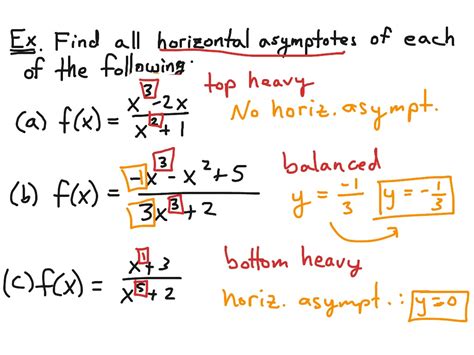 Ex. Find all horizontal asymptotes of each
of the following:
(a) f(x) = (x^3 - 2x)/(x^2 + 1) top heavy
No horiz. asympt.
(b) f(x) = (-1x^3 - x^2 + 5)/(3x^3 + 2) balanced
y = -1/3 y = -1/3
(c) f(x) = (x^1 + 3)/(x^5 + 2) bottom heavy
horiz. asympt.: y=0